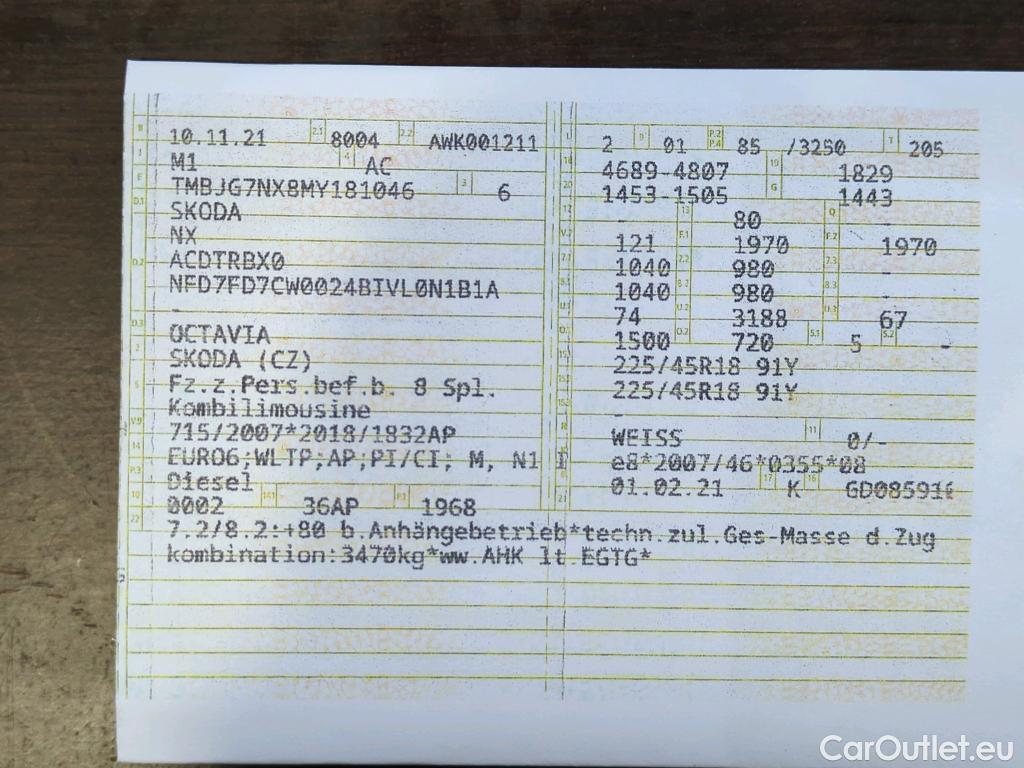 B 10.11.21 2.1 8004 2.2 AWK001211 L 2 9 01 P.2 P.4 85 /3250 T 205
J M1 4 AC 18 4689-4807 19 1829
E TMBJG7NX8MY181046 3 6 20 1453-1505 G 1443
D.1 SKODA 12 - 13 80 Q -
NX V.7 121 F.1 1970 F.2 1970
D.2 ACDTRBX0 7.1 1040 7.2 980 7.3 -
NFD7FD7CW0024BIVL0N1B1A 8.1 1040 8.2 980 8.3 -
- U.1 74 U.2 3188 U.3 67
D.3 OCTAVIA O.1 1500 O.2 720 S.1 5 S.2 -
2 SKODA (CZ) 15.1 225/45R18 91Y
5 Fz.z.Pers.bef.b. 8 Spl. 15.2 225/45R18 91Y
Kombilimousine -
V.9 715/2007*2018/1832AP R WEISS 11 0/-
14 EURO6;WLTP;AP;PI/CI; M, N1 I K e8*2007/46*0355*08
P.3 Diesel 6 01.02.21 17 K 16 GD08591
10 0002 14.1 36AP P.1 1968 21
22 7.2/8.2:+80 b.Anhängebetrieb*techn.zul.Ges-Masse d.Zug
kombination:3470kg*ww.AHK lt.EGTG*
CarOutlet.eu